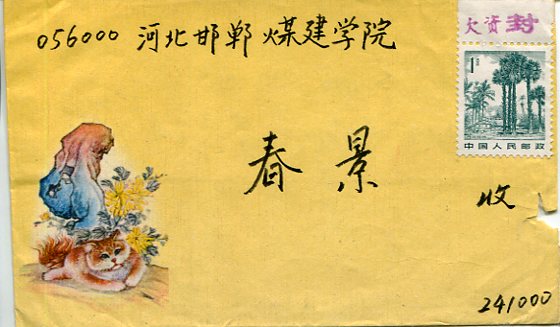 056000 河北邯郸煤建学院
欠资封
1分
中国人民邮政
春景
收
241000